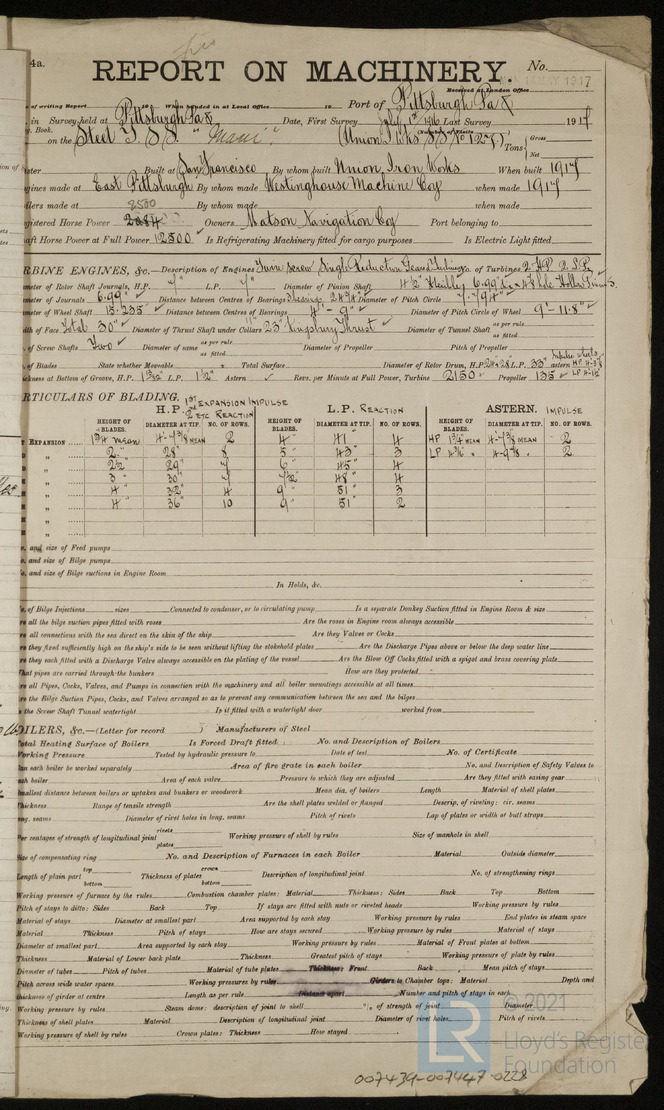 4a.
REPORT ON MACHINERY. No.
Received at London Office 1917
of writing Report When handed in at Local Office Port of Pittsburgh Pa
in Survey held at Pittsburgh Pa Date, First Survey July 1st 1916 Last Survey 1917
g. Book. (Number of Visits
on the Steel T.S.S. "Maui" (Union I. Wks S.S. No 127) Tons Gross Net
ster Built at San Francisco By whom built Union Iron Works When built 1917
gines made at East Pittsburgh By whom made Westinghouse Machine Coy when made 1917
ilers made at By whom made when made
gistered Horse Power 2084 8500 Owners Matson Navigation Coy Port belonging to
aft Horse Power at Full Power 12500 Is Refrigerating Machinery fitted for cargo purposes Is Electric Light fitted
RBINE ENGINES, &c.— Description of Engines Twin screw Single Reduction Geared Turbines No. of Turbines 2 HP 2 LP
ameter of Rotor Shaft Journals, H.P. 7" L.P. 7" Diameter of Pinion Shaft 6.99" dia
ameter of Journals 6.99" Distance between Centres of Bearings Diameter of Pitch Circle 7.794"
ameter of Wheel Shaft 15.235" Distance between Centres of Bearings 4'-9" Diameter of Pitch Circle of Wheel 9'-11.8"
th of Face Total 30" Diameter of Thrust Shaft under Collars 23" Kingsbury Thrust Diameter of Tunnel Shaft as per rule as fitted
of Screw Shafts Two Diameter of same as per rule as fitted Diameter of Propeller Pitch of Propeller
of Blades State whether Moveable Total Surface Diameter of Rotor Drum, H.P. L.P. 33" astern
ickness at Bottom of Groove, H.P. L.P. 1½" Astern Revs. per Minute at Full Power, Turbine 2150 Propeller 135
RTICULARS OF BLADING.
H.P. 1st EXPANSION IMPULSE 2nd ETC REACTION L.P. REACTION ASTERN. IMPULSE
HEIGHT OF BLADES. DIAMETER AT TIP. NO. OF ROWS. HEIGHT OF BLADES. DIAMETER AT TIP. NO. OF ROWS. HEIGHT OF BLADES. DIAMETER AT TIP. NO. OF ROWS.
EXPANSION 1¾ mean 4'-7⅜ MEAN 2 4" 41" 4 HP 1¾" MEAN 4'-7⅜ MEAN 2
" 2" 28" 8 5" 43" 3 LP 2
" 2½" 29" 7 6" 45" 4
" 3" 30" 7 7½" 48" 4
" 4" 32" 4 9" 51" 3
" 4" 36" 10 9" 51" 2
"
"
. and size of Feed pumps
. and size of Bilge pumps
. and size of Bilge suctions in Engine Room
In Holds, &c.
. of Bilge Injections sizes Connected to condenser, or to circulating pump Is a separate Donkey Suction fitted in Engine Room & size
re all the bilge suction pipes fitted with roses Are the roses in Engine room always accessible
re all connections with the sea direct on the skin of the ship Are they Valves or Cocks
re they fixed sufficiently high on the ship's side to be seen without lifting the stokehold plates Are the Discharge Pipes above or below the deep water line
re they each fitted with a Discharge Valve always accessible on the plating of the vessel Are the Blow Off Cocks fitted with a spigot and brass covering plate
hat pipes are carried through the bunkers How are they protected
re all Pipes, Cocks, Valves, and Pumps in connection with the machinery and all boiler mountings accessible at all times
re the Bilge Suction Pipes, Cocks, and Valves arranged so as to prevent any communication between the sea and the bilges
s the Screw Shaft Tunnel watertight Is it fitted with a watertight door worked from
OILERS, &c.—(Letter for record ) Manufacturers of Steel
otal Heating Surface of Boilers Is Forced Draft fitted No. and Description of Boilers
Working Pressure Tested by hydraulic pressure to Date of test No. of Certificate
an each boiler be worked separately Area of fire grate in each boiler No. and Description of Safety Valves to
ach boiler Area of each valve Pressure to which they are adjusted Are they fitted with easing gear
mallest distance between boilers or uptakes and bunkers or woodwork Mean dia. of boilers Length Material of shell plates
Thickness Range of tensile strength Are the shell plates welded or flanged Descrip. of riveting: cir. seams
ong. seams Diameter of rivet holes in long. seams Pitch of rivets Lap of plates or width of butt straps
Per centages of strength of longitudinal joint rivets plates Working pressure of shell by rules Size of manhole in shell
Size of compensating ring No. and Description of Furnaces in each Boiler Material Outside diameter
Length of plain part top bottom Thickness of plates crown bottom Description of longitudinal joint No. of strengthening rings
Working pressure of furnace by the rules Combustion chamber plates: Material Thickness: Sides Back Top Bottom
Pitch of stays to ditto: Sides Back Top If stays are fitted with nuts or riveted heads Working pressure by rules
Material of stays Diameter at smallest part Area supported by each stay Working pressure by rules End plates in steam space
Material Thickness Pitch of stays How are stays secured Working pressure by rules Material of stays
Diameter at smallest part Area supported by each stay Working pressure by rules Material of Front plates at bottom
Thickness Material of Lower back plate Thickness Greatest pitch of stays Working pressure of plate by rules
Diameter of tubes Pitch of tubes Material of tube plates Thickness: Front Back Mean pitch of stays
Pitch across wide water spaces Working pressures by rules Girders to Chamber tops: Material Depth and
thickness of girder at centre Length as per rule Distance apart Number and pitch of stays in each
Working pressure by rules Steam dome: description of joint to shell % of strength of joint Diameter
Thickness of shell plates Material Description of longitudinal joint Diameter of rivet holes Pitch of rivets
Working pressure of shell by rules Crown plates: Thickness How stayed
© 2021
LR Lloyd's Register
Foundation
007439-007447-0228